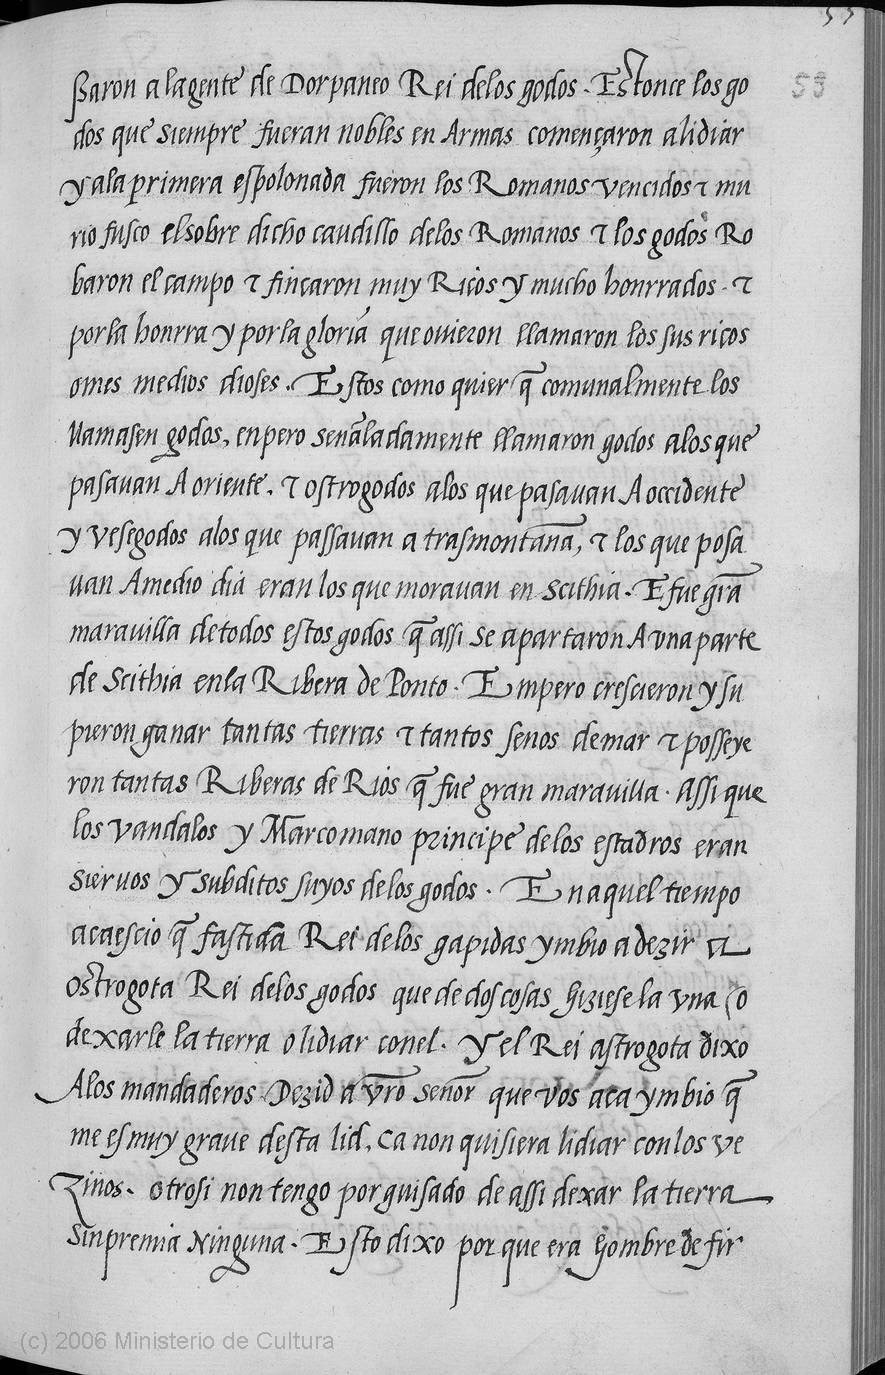 53
53
ssaron a la gente de Dorpaneo Rei delos godos. Estonce los go
dos que siempre fueran nobles en Armas començaron a lidiar
y ala primera espolonada fueron los Romanos vencidos ⁊ mu
rio fusco el sobre dicho caudillo delos Romanos ⁊ los godos Ro
baron el campo ⁊ fincaron muy Ricos y mucho honrrados. ⁊
por la honrra y por la gloria que ouieron llamaron los sus ricos
omes medios dioses. Estos como quier q̃ comunalmente los
llamasen godos, enpero senãladamente llamaron godos alos que
pasauan A oriente. ⁊ ostrogodos alos que pasauan A occidente
y vesegodos alos que passauan a trasmontana, ⁊ los que posa
uan Amedio dia eran los que morauan en Scithia. E fue grã
marauilla de todos estos godos q̃ assi se apartaron A vna parte
de Scithia enla Ribera de Ponto. Empero crescieron y su
pieron ganar tantas tierras ⁊ tantos senos de mar ⁊ posseye
ron tantas Riberas de Rios q̃ fue gran marauilla. Assi que
los vandalos y Marcomano principe delos estadros eran
sieruos y subditos suyos delos godos. En aquel tiempo
acaescio q̃ fastida Rei delos gapidas ymbio a dezir a
ostrogota Rei delos godos que de dos cosas hiziese la vna (o
dexarle la tierra o lidiar conel. Y el Rei astrogota dixo
Alos mandaderos Dezid a vr̃o señor que vos aca ymbio q̃
me es muy graue desta lid, ca non quisiera lidiar con los ve
zinos. otrosi non tengo por guisado de assi dexar la tierra
sin premia Ninguna. Esto dixo por que era hombre de fir
(c) 2006 Ministerio de Cultura